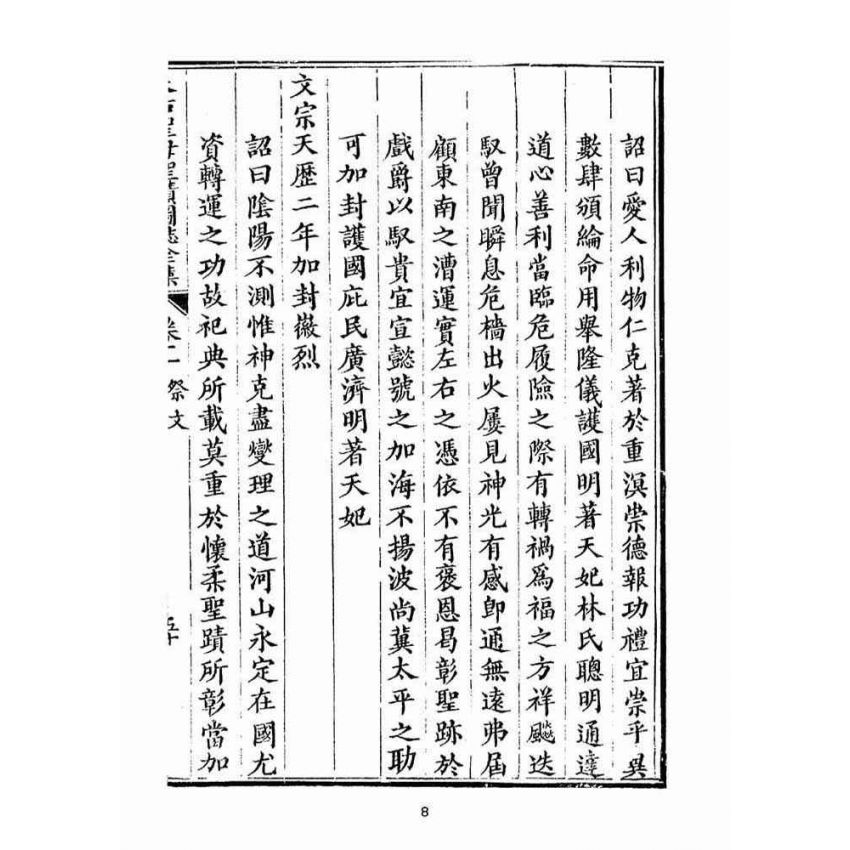 詔曰愛人利物仁克著於重溟崇德報功禮宜崇乎異
數肆頒綸命用舉隆儀護國明著天妃林氏聰明通達
道心善利當臨危履險之際有轉禍爲福之方祥飈迭
馭曾聞瞬息危檣出火屢見神光有感卽通無遠弗屆
顧東南之漕運實左右之憑依不有褒恩曷彰聖跡於
戲爵以馭貴宜宣懿號之加海不揚波尚冀太平之助
可加封護國庇民廣濟明著天妃
文宗天歷二年加封徽烈
詔曰陰陽不測惟神克盡燮理之道河山永定在國尤
資轉運之功故祀典所載莫重於懷柔聖蹟所彰當加
聖母聖蹟圖志全集 卷二 祭文 五十
8